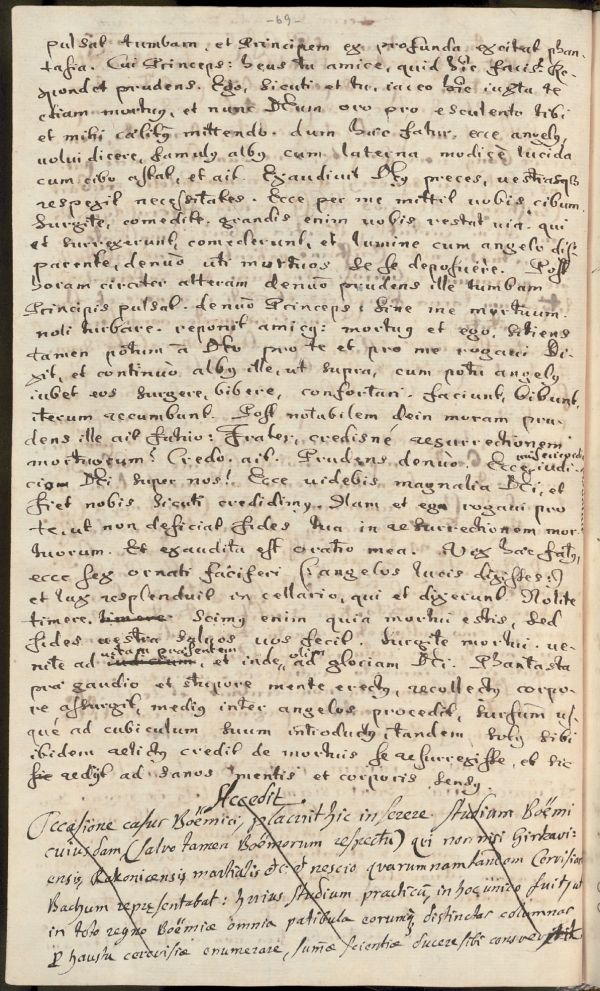 -69-
pulsat tumbam, et Principem ex profunda excitat phan-
tasia. Cui Princeps: heus tu amice, quid hic facis? Re-
spondet prudens. Ego, sicuti et tu, iaceo hic iuxta te
etiam mortuus, et nunc Deum oro pro esculento tibi
et mihi caelitus mittendo. dum haec fatur, ecce angelus,
volui dicere, famulus albus cum laterna modicè lucida
cum cibo astat, et ait. Exaudivit Deus preces, vestrasque
respexit necessitates. Ecce per me mittit vobis cibum.
Surgite, comedite. grandis enim vobis restat via. qui
et surrexerunt, comederunt, et lumine cum angelo dis-
parente, denuò uti mortuos se se deposuère. Post
horam circiter alteram denuò prudens ille tumbam
Principis pulsat. denuò Princeps: Sine me mortuum.
noli turbare. reponit amicus: mortuus et ego, sitiens
tamen potum à Deo pro te et pro me rogavi. Di-
xit, et continuo albus ille, ut supra, cum potu angelus
iubet eos surgere, bibere, confortari. faciunt, bibunt,
iterum recumbunt. Post notabilem dein moram pru-
dens ille ait socio: Frater, credisné resurrectionem
mortuorum? Credo. ait. Prudens denuò. Ecce judi-
cium Dei super nos! Ecce videbis magnalia Dei, et
fiet nobis sicuti credidimus. Nam et ego rogavi pro
te, ut non deficiat fides tua in resurrectionem mor-
tuorum. Et exaudita est oratio mea. Vix haec fatus,
ecce sex ornati faciferi (: angelos lucis dixisses :)
et lux resplenduit in cellario, qui et dixerunt Nolite
timere. timere Scimus enim quia mortui estis, sed
fides vestra salvos vos fecit. Surgite mortui. ve-
nite ad vitam praesentem, et inde olim ad gloriam Dei. Phantasta
prae gaudio et stupore mente erectus, recollectus corpo-
re assurgit, medius inter angelos procedit, sursum us-
què ad cubiculum suum introductus itandem solus sibi
ibidem relictus credit de mortuis se resurrexisse, et sic
sic redijt ad sanos mentis et corporis sensus.
Accedit.
Occasione casus Boëmici, placuit hic inserere Studium Boëmi
cuiusdam (salvo tamen Boëmorum respectu) qui non nisi
Rakonicensis martialis &c &c nescio quarumnam tandem Cervisiar
Bachum representabat: huius studium practicum in hoc unico fuit, ut
in toto regno Boëmiae omnia patibula eorumque distinctas columnas
P haustu cerevisiae enumerare, summae scientiae ducere sibi